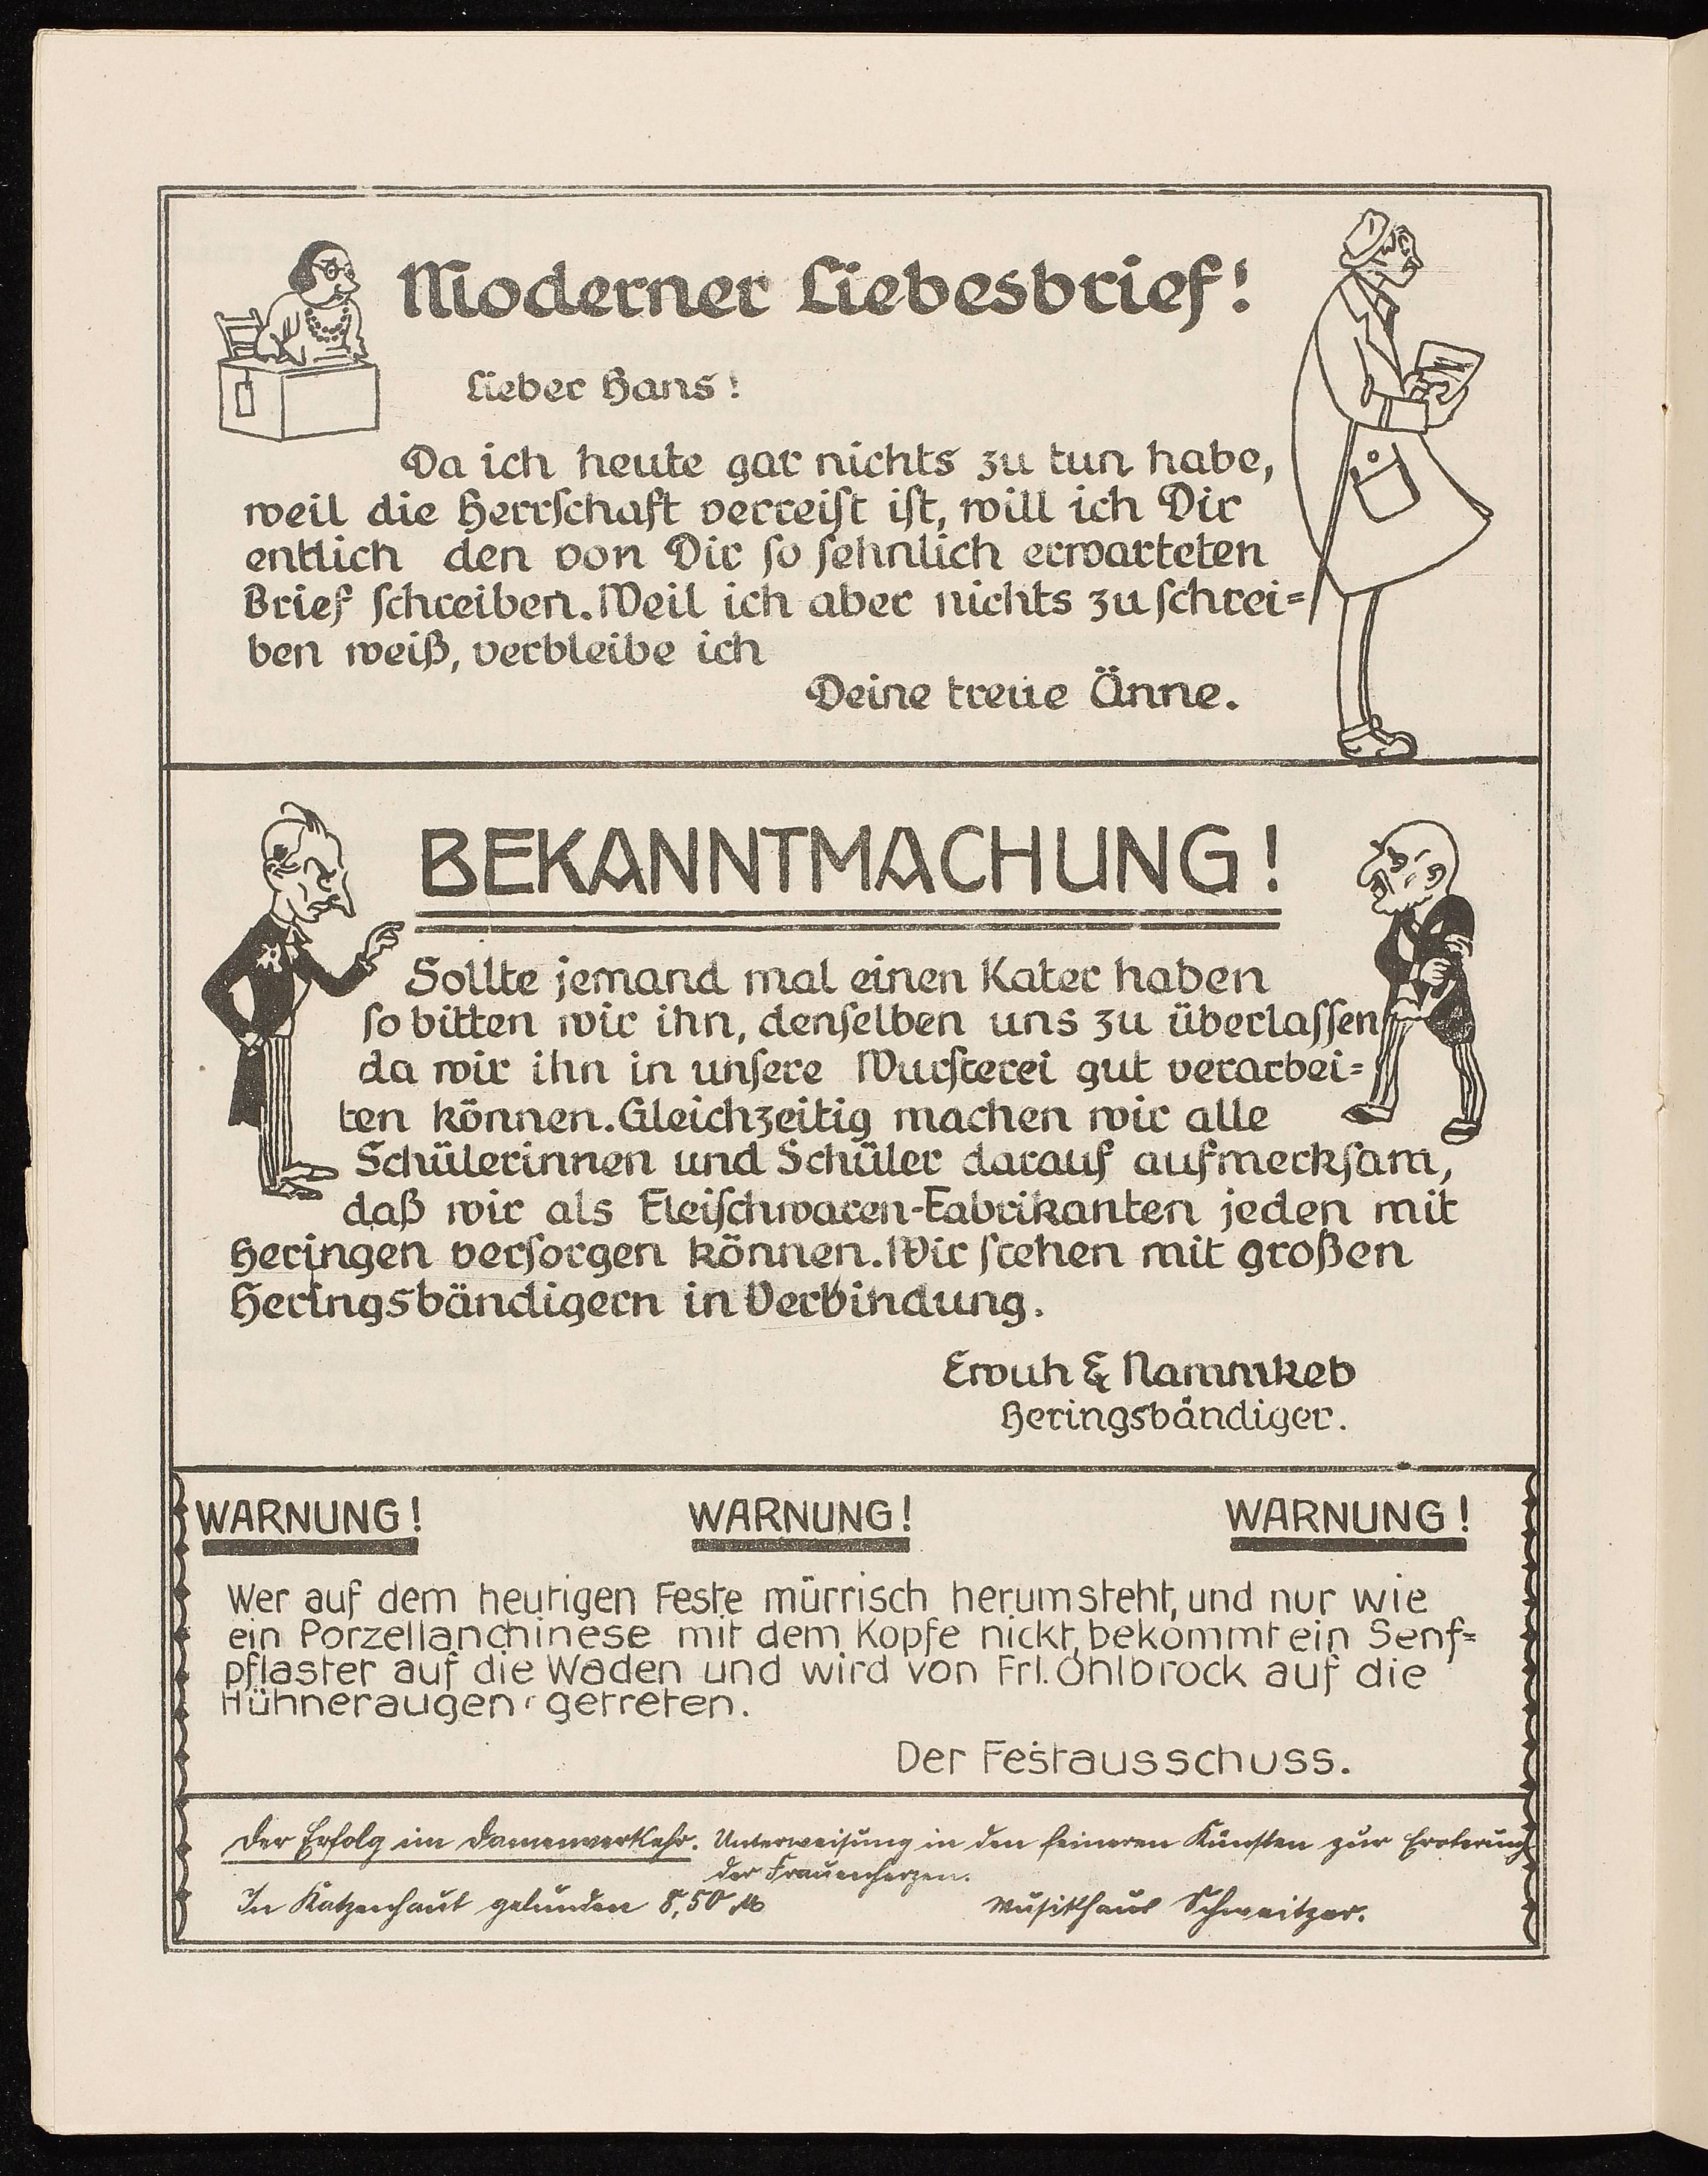 Moderner Liebesbrief!
Lieber Hans!
Da ich heute gar nichts zu tun habe,
weil die Herrſchaft verreiſt iſt, will ich Dir
entlich den von Dir ſo ſehnlich erwarteten
Brief ſchreiben. Weil ich aber nichts zu ſchrei=
ben weiß, verbleibe ich
Deine treue Änne.
BEKANNTMACHUNG!
Sollte jemand mal einen Kater haben
ſo bitten wir ihn, denſelben uns zu überlaſſen
da wir ihn in unſere Wurſterei gut verarbei=
ten können. Gleichzeitig machen wir alle
Schülerinnen und Schüler darauf aufmerkſam,
daß wir als Fleiſchwaren-Fabrikanten jeden mit
Heringen verſorgen können. Wir ſtehen mit großen
Heringsbändigern in Verbindung.
Ewuh & Nammkeb
Heringsbändiger.
WARNUNG! WARNUNG! WARNUNG!
Wer auf dem heutigen Feste mürrisch herumsteht, und nur wie
ein Porzellanchinese mit dem Kopfe nickt, bekommt ein Senf=
pflaster auf die Waden und wird von Frl. Ohlbrock auf die
Hühneraugen getreten.
Der Festausschuss.
Der Erfolg im Damenverkehr. Unterweisung in den feineren Künsten zur Eroberung
der Frauenherzen.
In Katzenhaut gebunden 8,50 M Musikhaus Schweitzer.